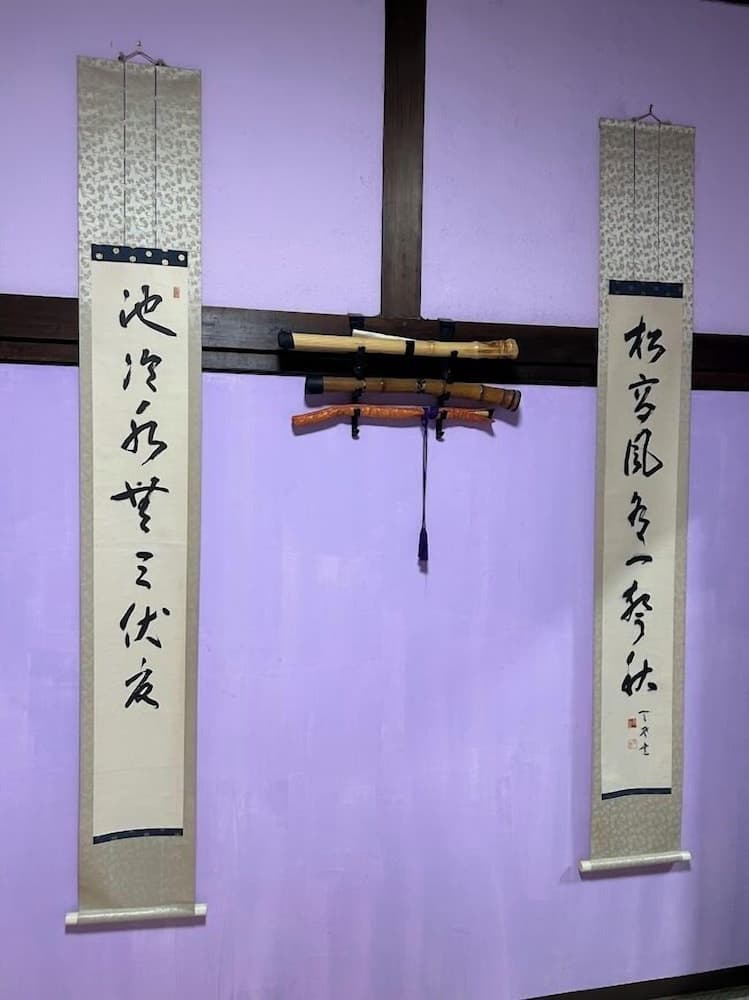 池冷水無三伏夏
松高風有一聲秋